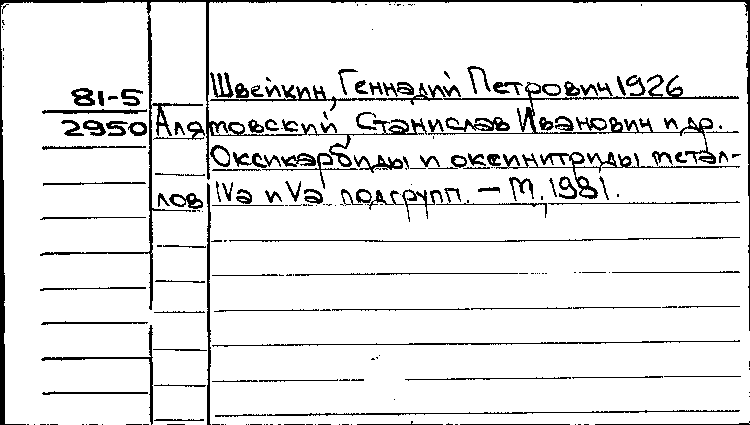 81-5 Швейкин, Геннадий Петрович 1926
2950 Алямовский, Станислав Иванович и др.
Оксикарбиды и оксинитриды метал-
лов IVa и Va подгрупп. — М, 1981.